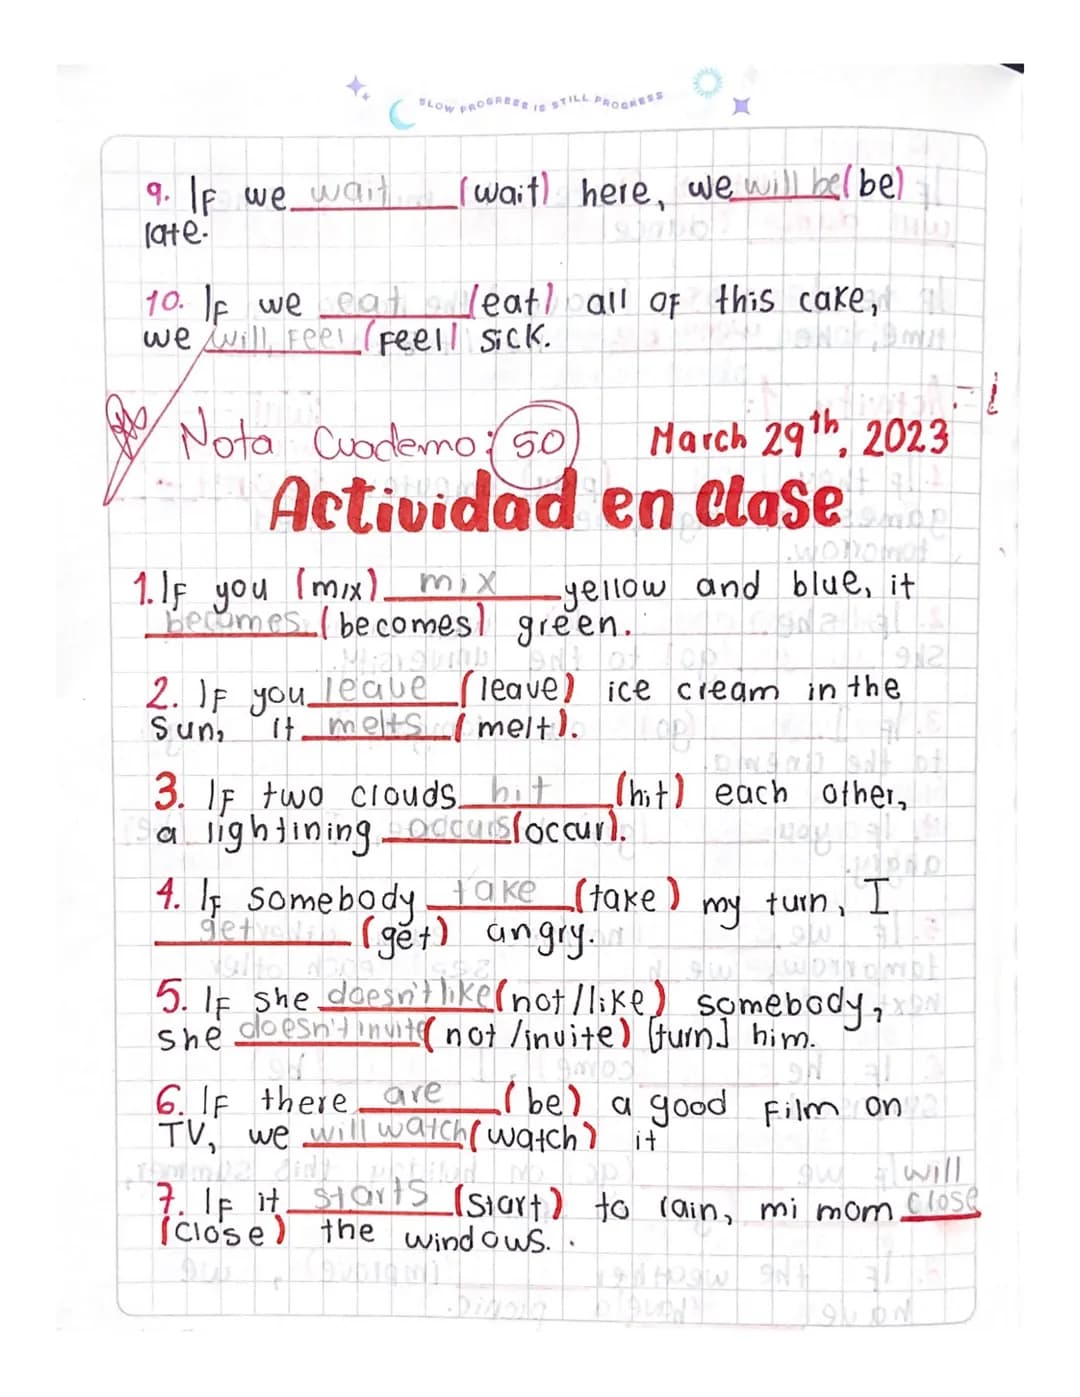 SLOW PROGRESS IS STILL PROGRESS
9. If we wait (wait) here, we will be (be)
late.
10. If we eat (eat) all of this cake,
we will feel (feel) sick.
Nota Cuaderno: 50
March 29th, 2023
Actividad en clase
1. If you (mix) mix yellow and blue, it
becomes (becomes) green.
2. If you leave (leave) ice cream in the
sun, it melts (melt).
3. If two clouds hit (hit) each other,
a lightining occurs (occur).
4. If somebody take (take) my turn, I
get (get) angry.
5. If she doesn't like (not/like) somebody,
she doesn't invite (not/invite) [turn] him.
6. If there are (be) a good film on
TV, we will watch (watch) it
will
7. If it starts (start) to rain, mi mom close
(close) the windows.